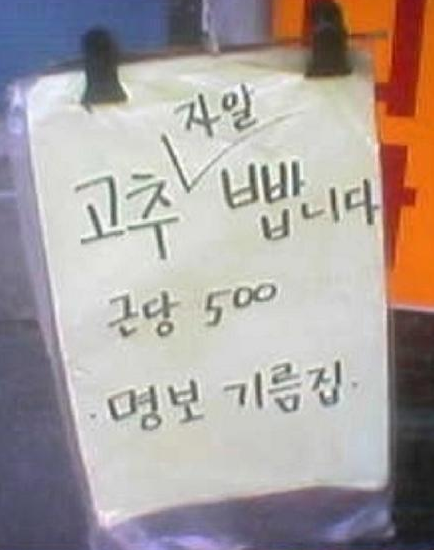 자알
고추 빱니다
근당 500
. 명보 기름집.